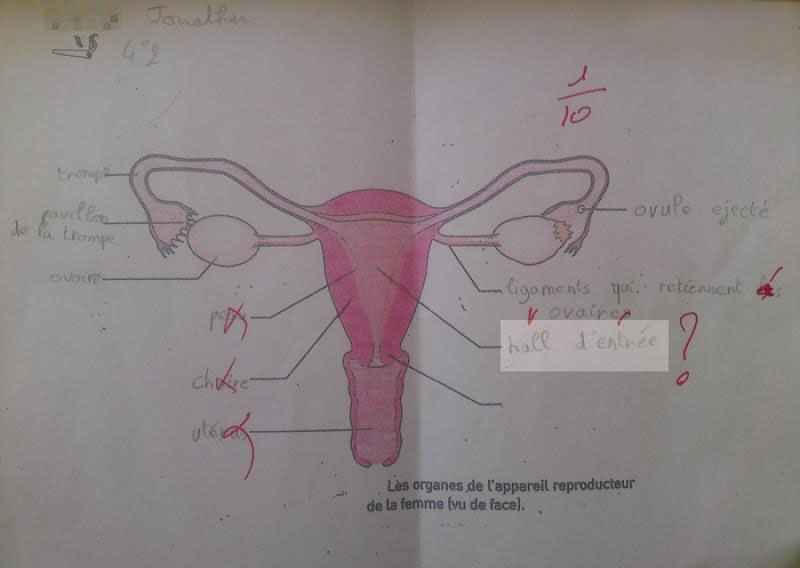 Jonathan
4°2
1/10
trompe
pavillon
de la trompe
ovaire
peau
chaire
utérus
ovule ejecté
ligaments qui retiennent les
ovaires
hall d'entrée ?
Les organes de l'appareil reproducteur
de la femme (vu de face).